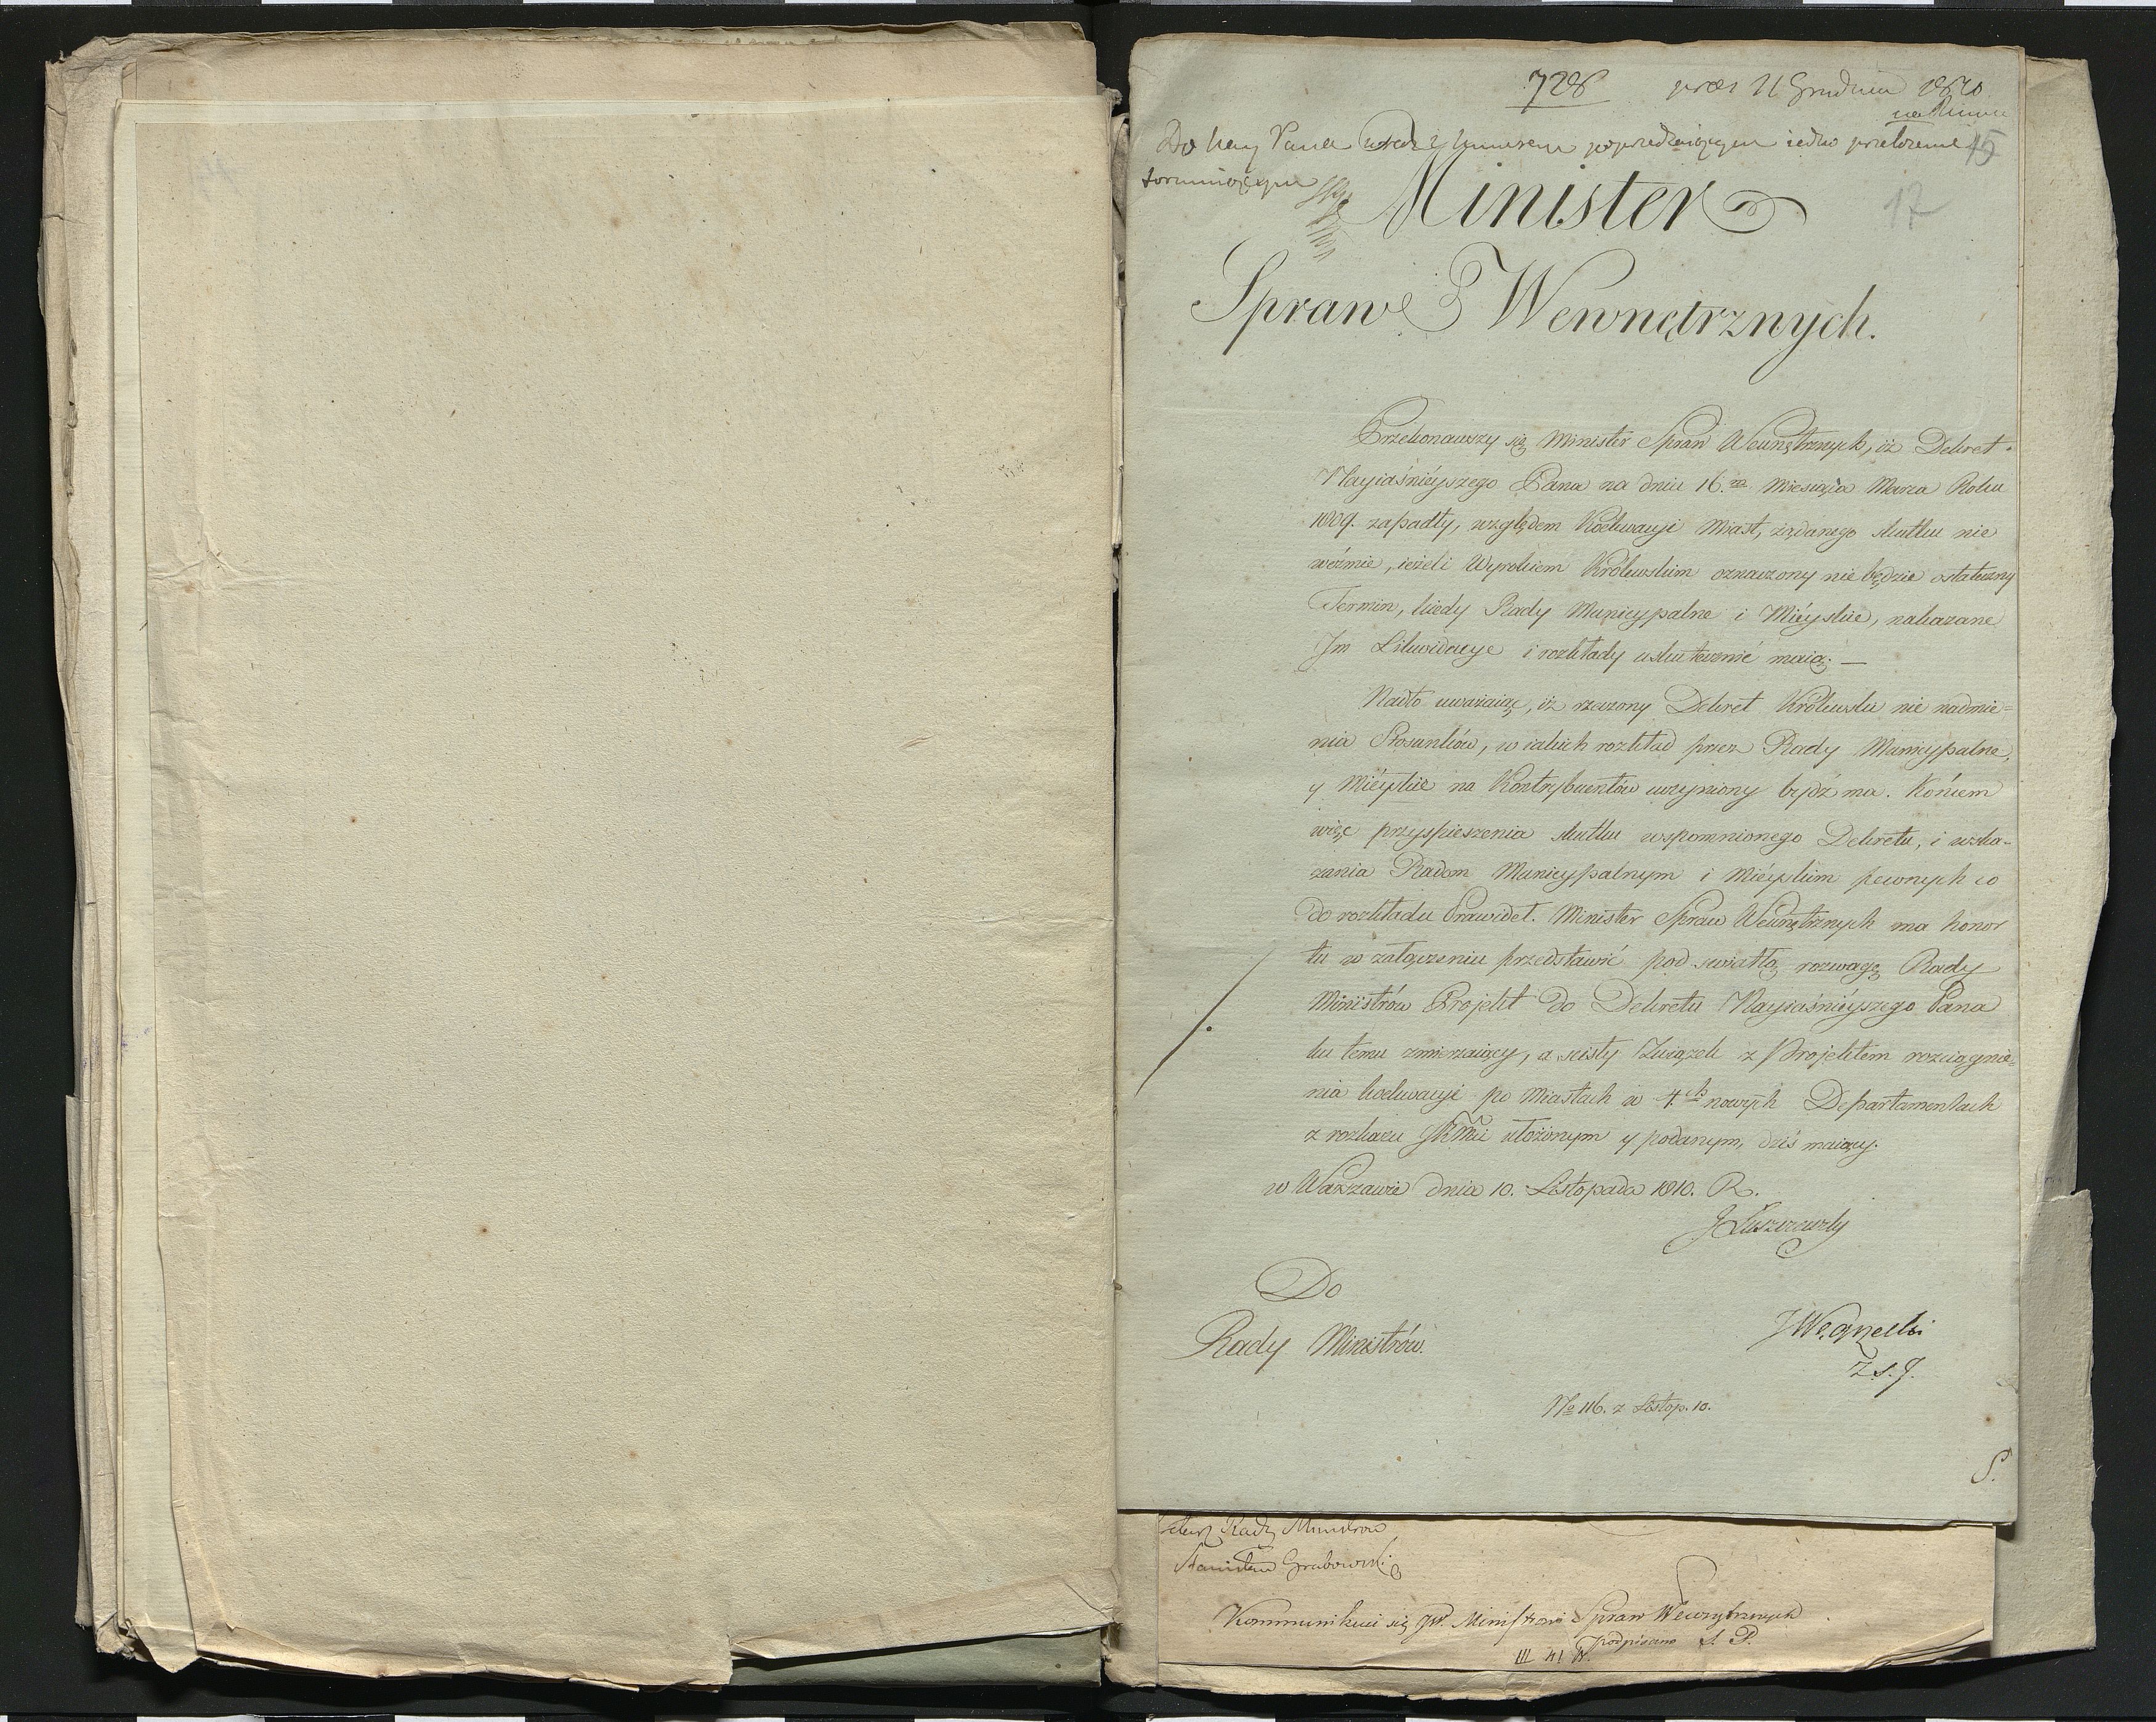 728 prez 21 Grudnia 1810
Do Nay Pana wraz z Numerem poprzedzaiącym iedno przełożenie 15
formuiącym
17
Minister
Spraw Wewnętrznych.
Przekonawszy się Minister Spraw Wewnętrznych, iż Dekret
Nayiaśnieyszego Pana na dniu 16. m Miesiąca Marca Roku
1809. zapadły, względem Koekwacyi Miast, żądanego skutku nie
weźmie, ieżeli Wyrokiem Królewskim oznaczony nie będzie ostateczny
Termin, kiedy Rady Municypalne i Mieyskie, nakazane
Im Likwidacye i rozkłady uskutecznić maią; —
Nadto uważaiąc, iż rzeczony Dekret Królewski nie nadmie=
nia Stosunków, w iakich rozkład przez Rady Municypalne,
y Mieyskie na Kontrybuentów uczyniony bydź ma. Końcem
więc przyspieszenia skutku wspomnionego Dekretu, i wska-
zania Radom Municypalnym i Mieyskim pewnych co
do rozkładu Prawideł. Minister Spraw Wewnętrznych ma honor
tu w załączeniu przedstawić pod swiatłą rozwagę Rady
Ministrów Projekt do Dekretu Nayiaśnieyszego Pana
ku temu zmierzaiący, a scisły Związek z Projektem rozciągnie=
nia koekwacyi po Miastach w 4.ch nowych Departamentach
z rozkazu JKMci ułożonym y podanym, dziś maiący.
w Warszawie dnia 10. Listopada 1810. R.
J Łuszczewski
Do
Rady Ministrów.
J Węgrzecki
Z S. J.
No 116. z Listop. 10.
S.
Rady Ministrów
Stanisław Grabowski
Kommunikuie się JW. Ministrowi Spraw Wewnętrznych
podpisano S. P.